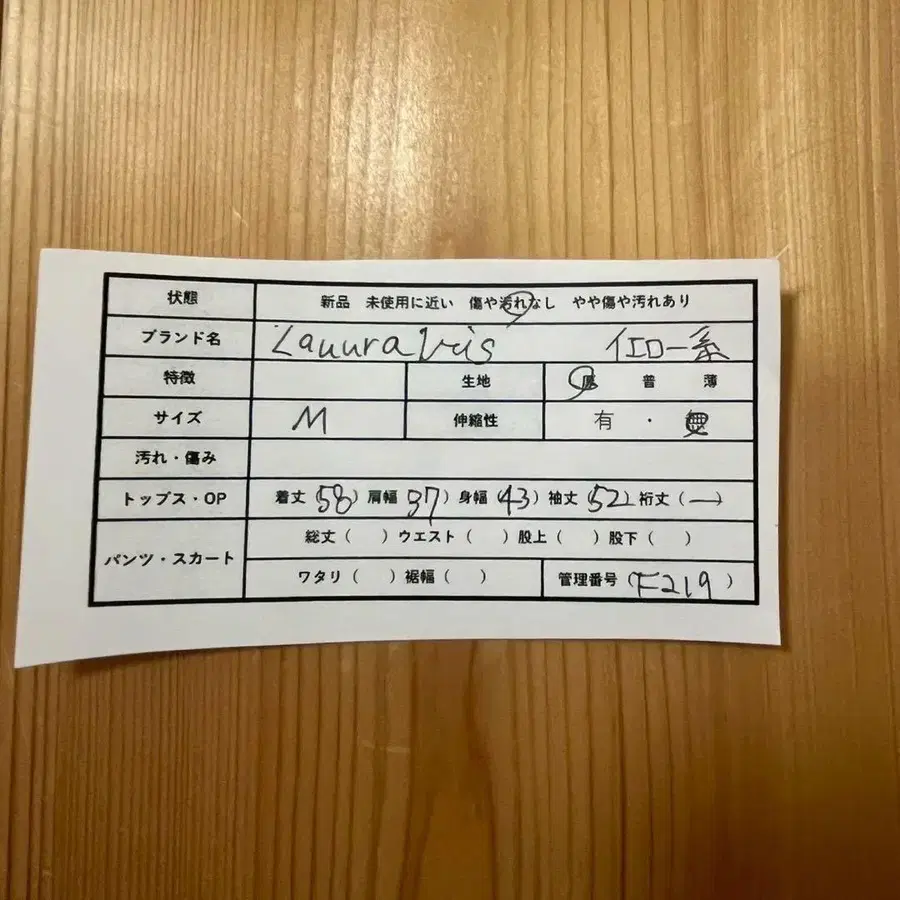 状態 新品 未使用に近い 傷や汚れなし やや傷や汚れあり
ブランド名 イエロー系
特徴 生地 厚 普 薄
サイズ M 伸縮性 有 ・ 無
汚れ・傷み
トップス・OP 着丈(58) 肩幅(37) 身幅(43) 袖丈(52) 裄丈(ー)
パンツ・スカート 総丈( ) ウエスト( ) 股上( ) 股下( )
ワタリ( ) 裾幅( ) 管理番号(F219)